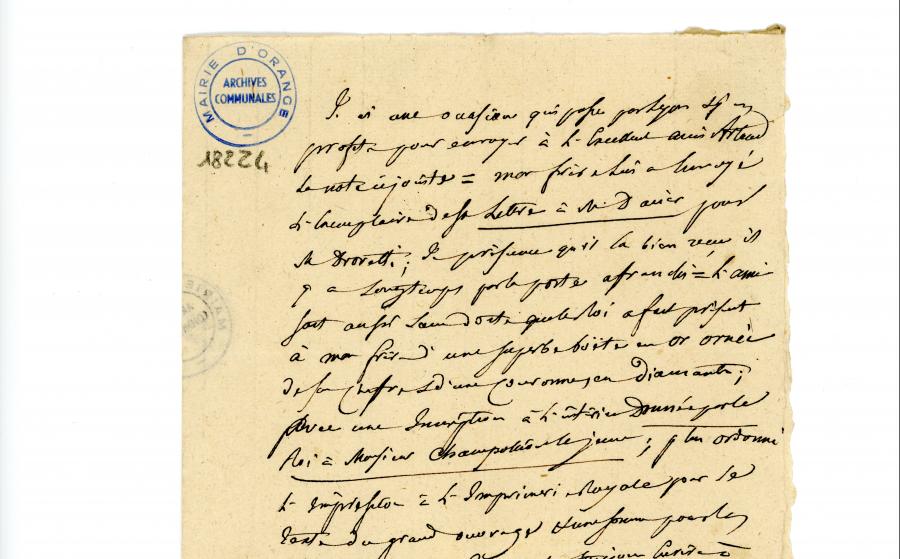 MAIRIE D'ORANGE
ARCHIVES
COMMUNALES
18224
J'ai une occasion qui passe par Lyon et j'en
profite pour envoyer à l'Excellent ami Artaud
la note ci jointe = mon frère lui a envoyé
l'exemplaire de sa Lettre à M Dacier pour
M Drovetti; Je présume qu'il l'a bien reçu il
y a Longtemps par la poste affranchi = L'ami
sait aussi sans doute que le Roi a fait présent
à mon frère d'une superbe boîte en or ornée
de son chiffre et d'une couronne en Diamants;
avec une Inscription à l'intérieur Donnée par le
Roi à Monsieur Champollion le jeune; plus ordonné
l'Impression à l'Imprimerie Royale par le
texte du grand ouvrage & une somme pour les